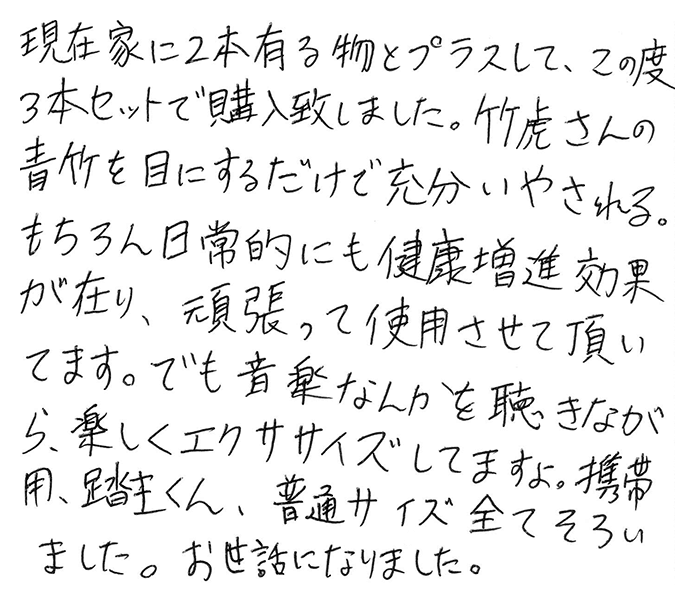 現在家に2本有る物とプラスして、この度
3本セットで購入致しました。竹虎さんの
青竹を目にするだけで充分いやされる。
もちろん日常的にも健康増進効果
が在り、頑張って使用させて頂い
てます。でも音楽なんかを聴きなが
ら、楽しくエクササイズしてますよ。携帯
用、踏王くん、普通サイズ全てそろい
ました。お世話になりました。